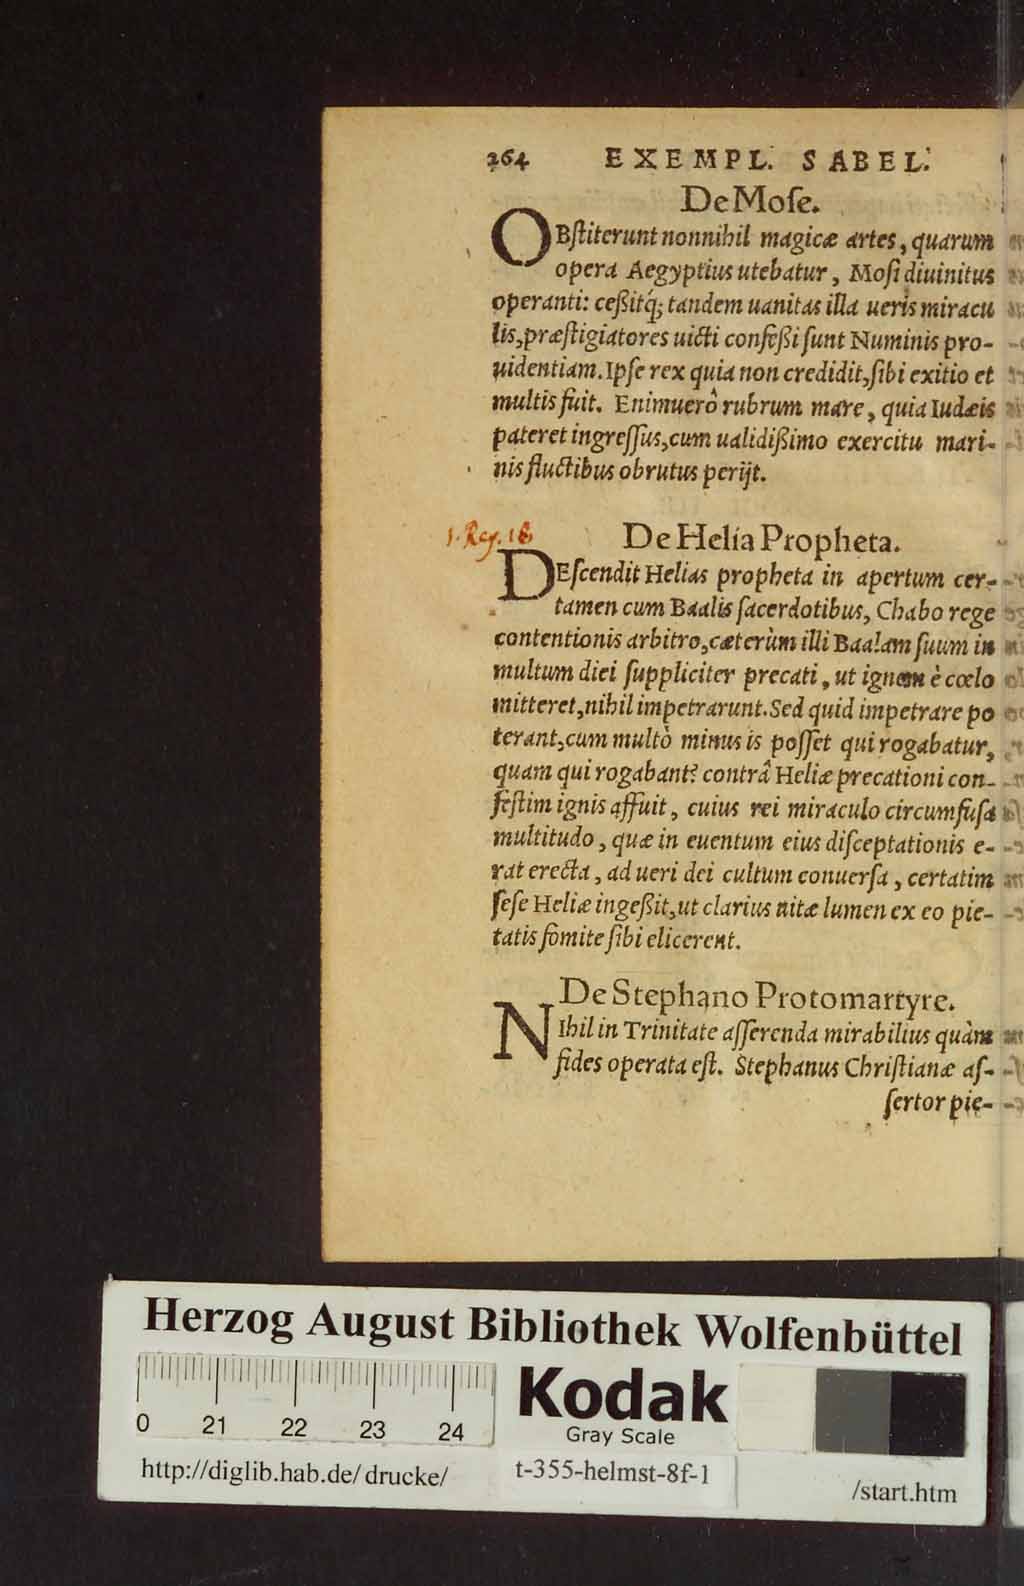 264 EXEMPL. SABEL.
De Moſe.
OBſtiterunt nonnihil magicæ artes, quarum
opera Aegyptius utebatur, Moſi diuinitus
operanti: ceßitq́; tandem uanitas illa ueris miracu
lis, præſtigiatores uicti confeßi ſunt Numinis pro-
uidentiam. Ipſe rex quia non credidit, ſibi exitio et
multis fuit. Enimuerô rubrum mare, quia Iudæis
pateret ingreſſus, cum ualidißimo exercitu mari-
nis fluctibus obrutus perijt.
1. Reg. 18
De Helía Propheta.
DEſcendit Helias propheta in apertum cer-
tamen cum Baalis ſacerdotibus, Chabo rege
contentionis arbitro, cæterùm illi Baalam ſuum in
multum diei ſuppliciter precati, ut ignem è cœlo
mitteret, nihil impetrarunt. Sed quid impetrare po
terant, cum multò minus is poſſet qui rogabatur,
quam qui rogabant? contrâ Heliæ precationi con-
feſtim ignis affuit, cuius rei miraculo circumfuſa
multitudo, quæ in euentum eius diſceptationis e-
rat erecta, ad ueri dei cultum conuerſa, certatim
ſeſe Heliæ ingeßit, ut clarius uitæ lumen ex eo pie-
tatis fomite ſibi elicerent.
De Stephano Protomartyre.
NIhil in Trinitate aſſerenda mirabilius quàm
fides operata eſt. Stephanus Chriſtianæ aſ-
ſertor pie-
Herzog August Bibliothek Wolfenbüttel
0 21 22 23 24
Kodak
Gray Scale
http://diglib.hab.de/drucke/
t-355-helmst-8f-1
/start.htm